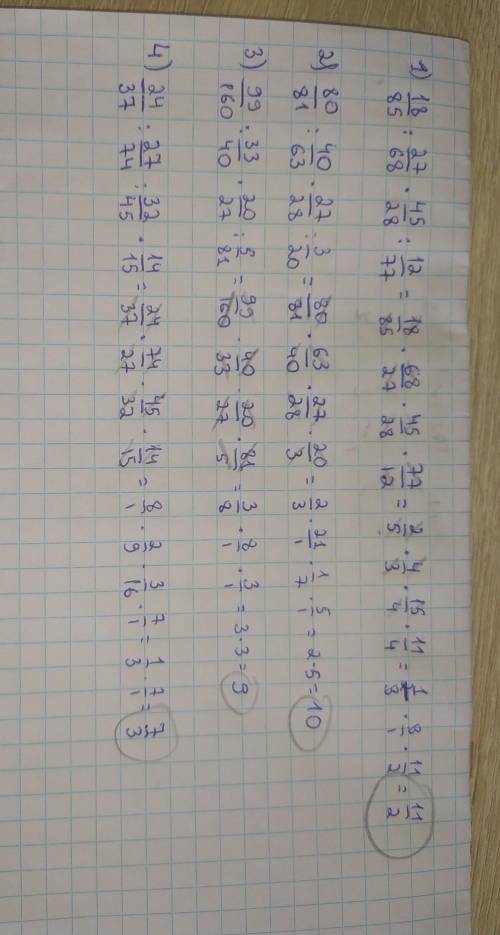 1) 18/85 : 27/68 · 45/28 : 12/77 = 18/85 · 68/27 · 45/28 · 77/12 = 2/5 · 4/3 · 15/4 · 11/4 = 1/3 · 8/1 · 11/2 = 11/2
2) 80/81 : 40/63 · 27/28 : 3/20 = 80/81 · 63/40 · 27/28 · 20/3 = 2/3 · 21/1 · 1/7 · 5/1 = 2·5=10
3) 99/160 : 33/40 · 20/27 : 5/81 = 99/160 · 40/33 · 20/27 · 81/5 = 3/8 · 8/1 · 3/1 = 3·3=9
4) 24/37 : 27/74 : 32/45 · 14/15 = 24/37 · 74/27 · 45/32 · 14/15 = 8/1 · 2/9 · 3/16 · 7/1 = 1/3 · 7/1 = 7/3